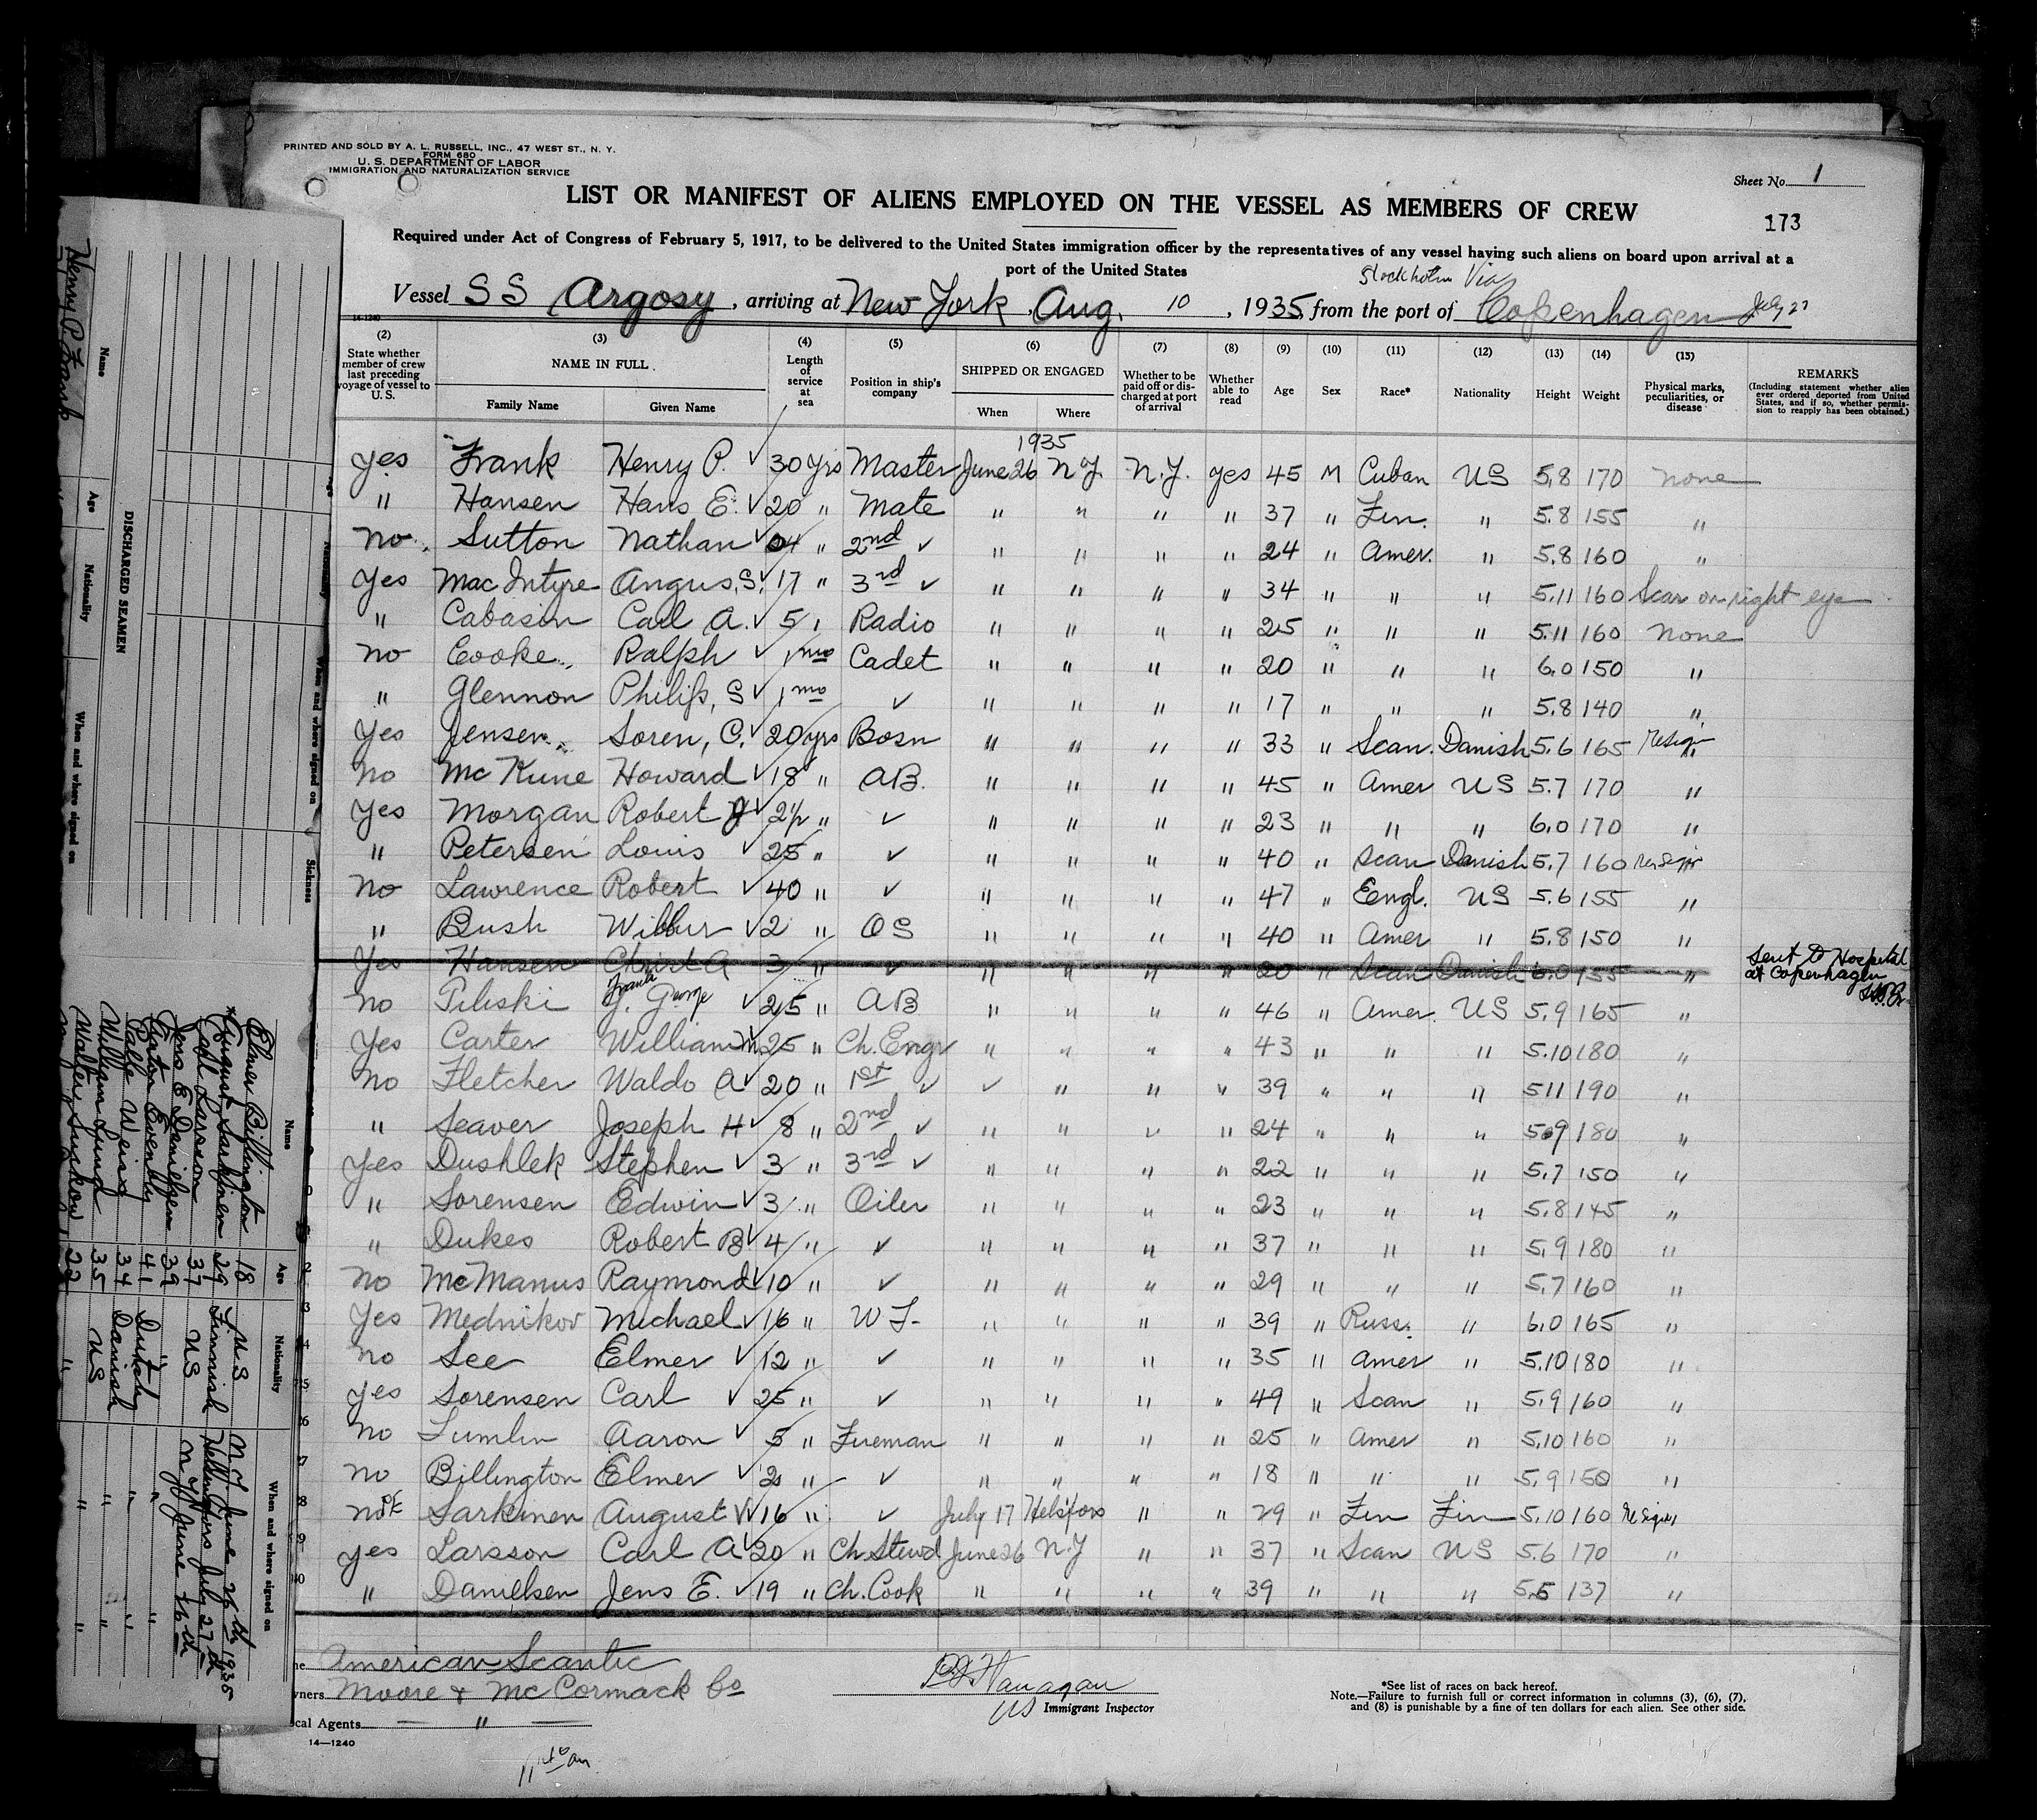 PRINTED AND SOLD BY A. L. RUSSELL, INC., 47 WEST ST., N. Y.
FORM 680
U. S. DEPARTMENT OF LABOR
IMMIGRATION AND NATURALIZATION SERVICE
Sheet No. 1
LIST OR MANIFEST OF ALIENS EMPLOYED ON THE VESSEL AS MEMBERS OF CREW
173
Required under Act of Congress of February 5, 1917, to be delivered to the United States immigration officer by the representatives of any vessel having such aliens on board upon arrival at a
port of the United States
Stockholm Via
Vessel SS Argosy, arriving at New York Aug. 10, 1935, from the port of Copenhagen July 27
14-1240
(2) (3) (4) (5) (6) (7) (8) (9) (10) (11) (12) (13) (14) (15)
State whether member of crew last preceding voyage of vessel to U. S. NAME IN FULL Family Name Given Name Length of service at sea Position in ship's company SHIPPED OR ENGAGED When Where Whether to be paid off or discharged at port of arrival Whether able to read Age Sex Race* Nationality Height Weight Physical marks, peculiarities, or disease REMARKS (Including statement whether alien ever ordered deported from United States, and if so, whether permission to reapply has been obtained.)
1935
Yes Frank Henry P. ✓ 30 yrs Master June 26 N.Y. N.Y. yes 45 M Cuban US 5.8 170 none
" Hansen Hans E. ✓ 20 " Mate " " " " 37 " Fin. " 5.8 155 "
No Sutton Nathan ✓ 04 " 2nd ✓ " " " " 24 " Amer. " 5.8 160 "
Yes MacIntyre Angus, S. ✓ 17 " 3rd ✓ " " " " 34 " " " 5.11 160 Scar on right eye
" Cabason Carl A. ✓ 5 " Radio " " " " 25 " " " 5.11 160 none
no Cooke Ralph ✓ 1 mo Cadet " " " " 20 " " " 6.0 150 "
" Glennon Philip, S ✓ 1 mo ✓ " " " " 17 " " " 5.8 140 "
Yes Jensen Soren, C. ✓ 20 yrs Bosn " " " " 33 " Scan. Danish 5.6 165 " resign
no McKune Howard ✓ 18 " AB. " " " " 45 " Amer US 5.7 170 "
Yes Morgan Robert J ✓ 2½ " ✓ " " " " 23 " " " 6.0 170 "
" Petersen Louis ✓ 25 " ✓ " " " " 40 " Scan Danish 5.7 160 resign
No Lawrence Robert ✓ 40 " ✓ " " " " 47 " Engl. US 5.6 155 "
" Bush Wilbur ✓ 2 " OS " " " " 40 " Amer " 5.8 150 "
Yes Hansen Christ A 3 " ✓ " " " " 20 " Scan Danish 6.0 155 " Sent to Hospital at Copenhagen
no Piliski Frank George 25 " AB " " " " 46 " Amer. US 5.9 165 "
Yes Carter William M 25 " Ch. Engr " " " " 43 " " " 5.10 180 "
No Fletcher Waldo A ✓ 20 " 1st ✓ ✓ " " " 39 " " " 5 11 190 "
" Seaver Joseph H ✓ 8 " 2nd ✓ " " " " 24 " " " 5.9 180 "
Yes Dushlek Stephen ✓ 3 " 3rd ✓ " " " " 22 " " " 5.7 150 "
" Sorensen Edwin ✓ 3 " Oiler " " " " 23 " " " 5.8 145 "
" Dukes Robert B ✓ 4 " ✓ " " " " 37 " " " 5.9 180 "
No McManus Raymond ✓ 10 " ✓ " " " " 29 " " " 5.7 160 "
Yes Mednikov Michael ✓ 16 " WT. " " " " 39 " Russ. " 6.0 165 "
no See Elmer ✓ 12 " ✓ " " " " 35 " Amer " 5.10 180 "
yes Sorensen Carl ✓ 25 " ✓ " " " " 49 " Scan " 5.9 160 "
no Tumlin Aaron ✓ 5 " Fireman " " " " 25 " Amer " 5.10 160 "
no Billington Elmer ✓ 2 " ✓ " " " " 18 " " " 5.9 150 "
no Sarkinen August ✓ 16 " ✓ July 17 Helsifors " " 29 " Fin Fin 5.10 160 resign
yes Larsson Carl A ✓ 20 " Ch. Stewd June 26 N.Y " " 37 " Scan US 5.6 170 "
" Danielsen Jens E. ✓ 19 " Ch. Cook " " " " 39 " " " 5.5 137 "
American Scantic
Owners Moore & McCormack Co
Local Agents "
14—1240
Flanagan
US Immigrant Inspector
*See list of races on back hereof.
Note.—Failure to furnish full or correct information in columns (3), (6), (7),
and (8) is punishable by a fine of ten dollars for each alien. See other side.
11 am
Henry P. Frank
DISCHARGED SEAMEN
Name Age Nationality When and where signed on
Nationality When and where signed on Sickness
Name Age Nationality When and where signed on
Elmer Billington 18 US N.Y. June 26th 1935
August Sarkinen 29 Finnish Helsingfors July 27th
Carl Larsson 37 US N.Y. June 26th
Jens E Danielsen 39 " "
Anton Evenby 41 Dutch "
Palle Weiss 34 Danish "
William Lund 35 US "
Walter Suskow 22 " "